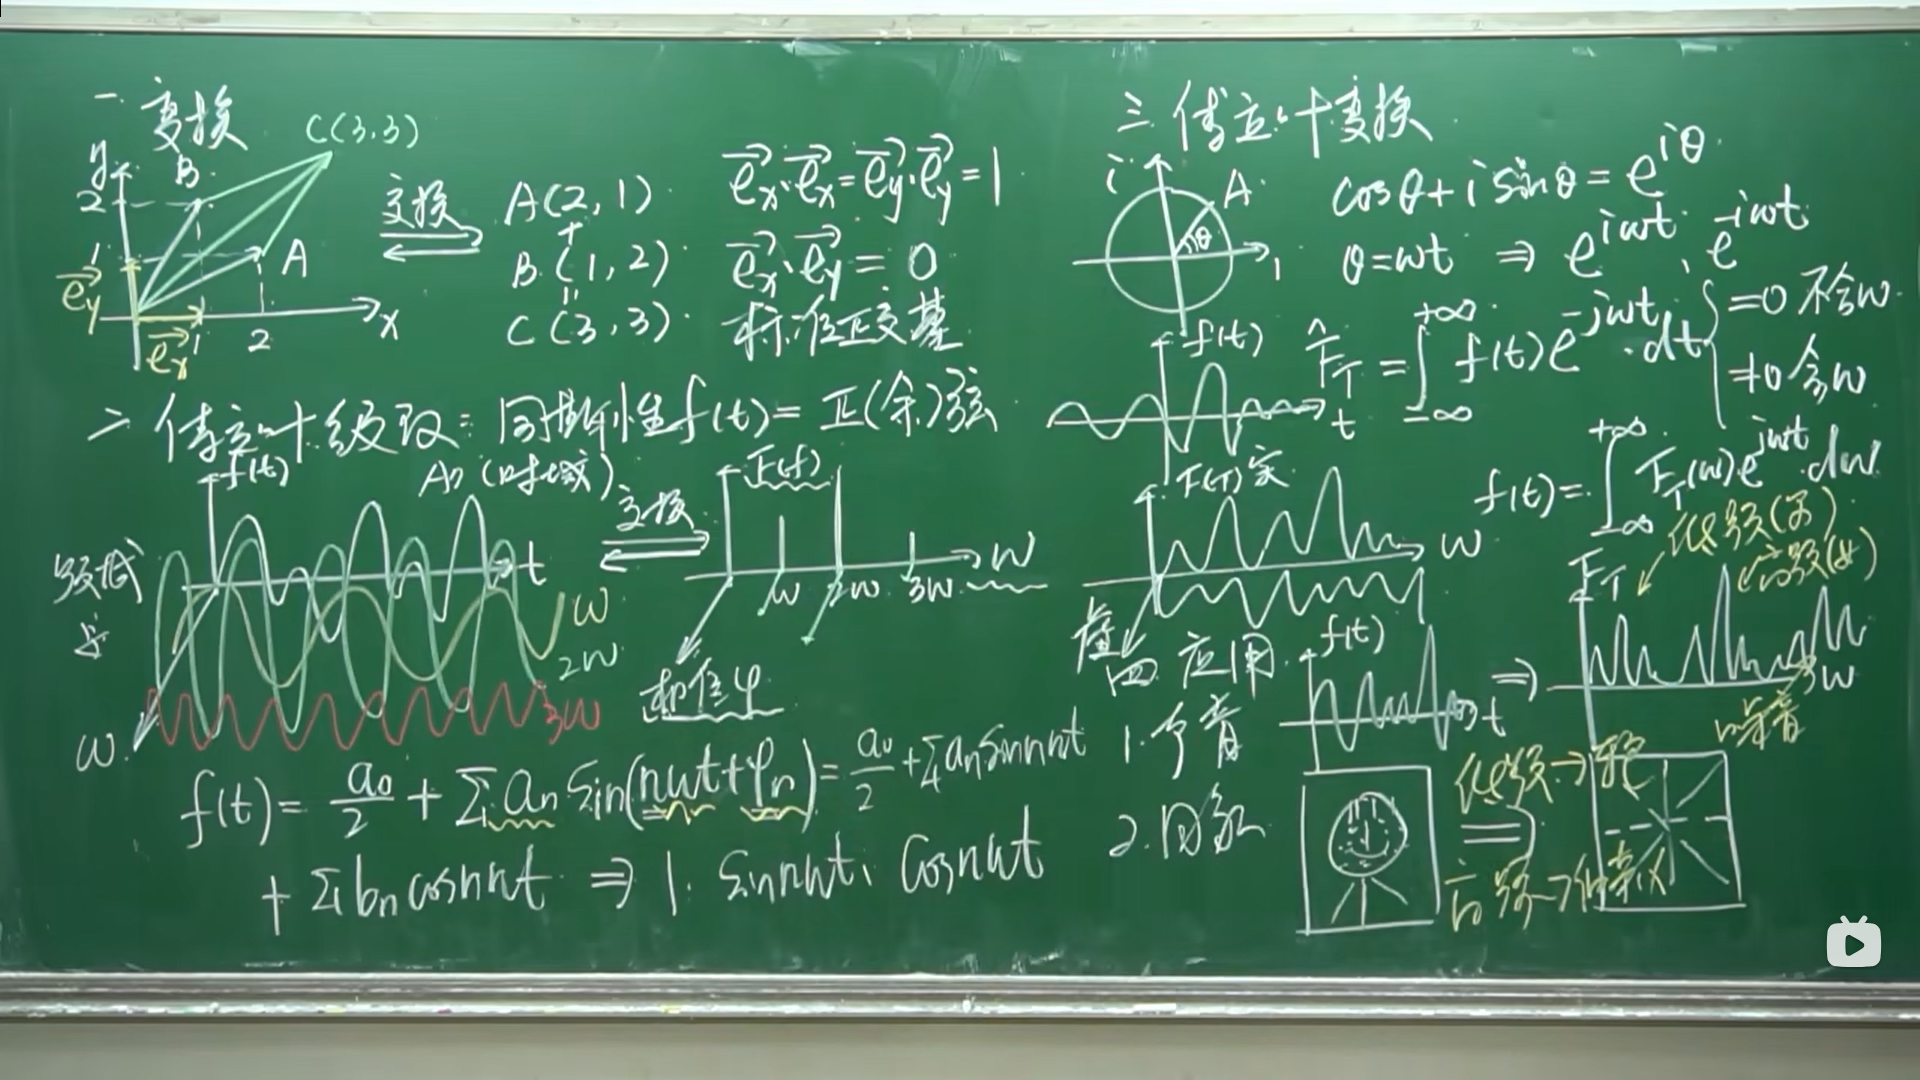 一. 变换
y
C(3.3)
B
2
1
A
e⃗y
e⃗x
1
2
x
变换
A(2, 1)
+
B(1, 2)
=
C(3, 3)
e⃗x·e⃗x=e⃗y·e⃗y=1
e⃗x·e⃗y=0
标准正交基
二 傅立叶级数: 周期性f(t)=正(余)弦
f(t)
A) (时域)
变换
F(f)
t
ω
2ω
3ω
ω
ω
2ω
3ω
ω
相位φ
f(t)= a₀/2 + Σ aₙ sin(nωt+φₙ)= a₀/2 +Σ aₙ sin nωt
+ Σ bₙ cosnωt ⇒ 1. sin nωt、cosnωt
三. 傅立叶变换
i
A
θ
1
cosθ+i sinθ=e^{iθ}
θ=ωt ⇒ e^{iωt}、e^{-iωt}
f(t)
t
F̂_T=∫_{-∞}^{+∞} f(t)e^{-jωt}·dt
=0 不含ω
≠0 含ω
F(T)实
ω
虚
f(t)=∫_{-∞}^{+∞} F_T(ω)e^{jωt}·dω
四 应用
f(t)
t
⇒
F_T
低频(男)
高频(女)
ω
噪音
1. 声音
2. 图象
低频→轮
高频→细节